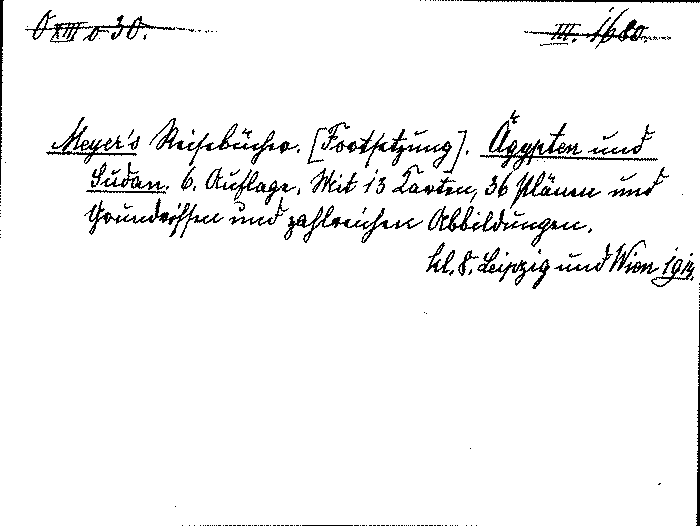 O XIII o 30. III. 1680.
Meyer's Reisebücher. [Fortsetzung]. Ägypten und
Sudan. 6. Auflage. Mit 13 Karten, 36 Plänen und
Grundrissen und zahlreichen Abbildungen.
kl. 8. Leipzig und Wien